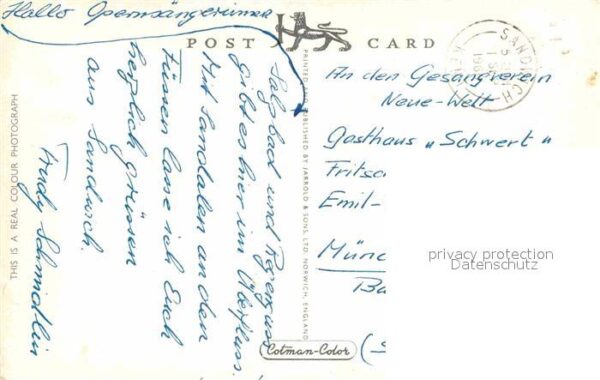 Hallo Opernsängerinnen
POST CARD
Salzbad und Regenguss
gibt es hier im Überfluss.
Mit Sandalen an den
Füssen lasse ich Euch
herzlich grüssen
aus Sandwich.
Trudy Schmidlin
An den Gesangverein
Neue-Welt
Gasthaus "Schwert"
Fritsc
Emil-
Münc
Ba
(-S
privacy protection
Datenschutz
SANDWICH
THIS IS A REAL COLOUR PHOTOGRAPH
PRINTED AND PUBLISHED BY JARROLD & SONS, LTD. NORWICH, ENGLAND
Cotman-Color